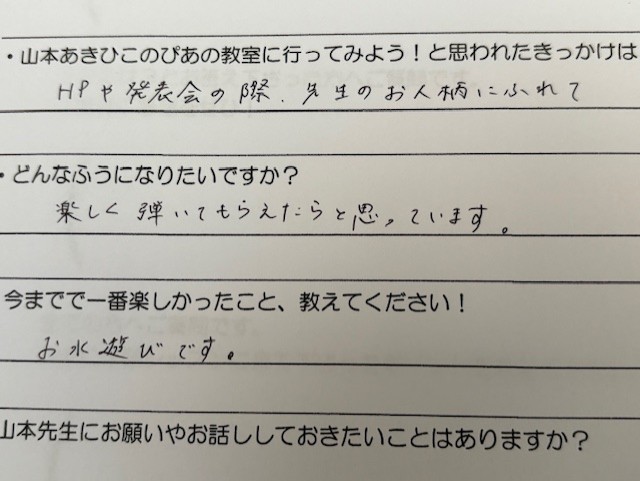 ・山本あきひこのぴあの教室に行ってみよう！と思われたきっかけは
HPや発表会の際、先生のお人柄にふれて
・どんなふうになりたいですか？
楽しく弾いてもらえたらと思っています。
今までで一番楽しかったこと、教えてください！
お水遊びです。
山本先生にお願いやお話ししておきたいことはありますか？